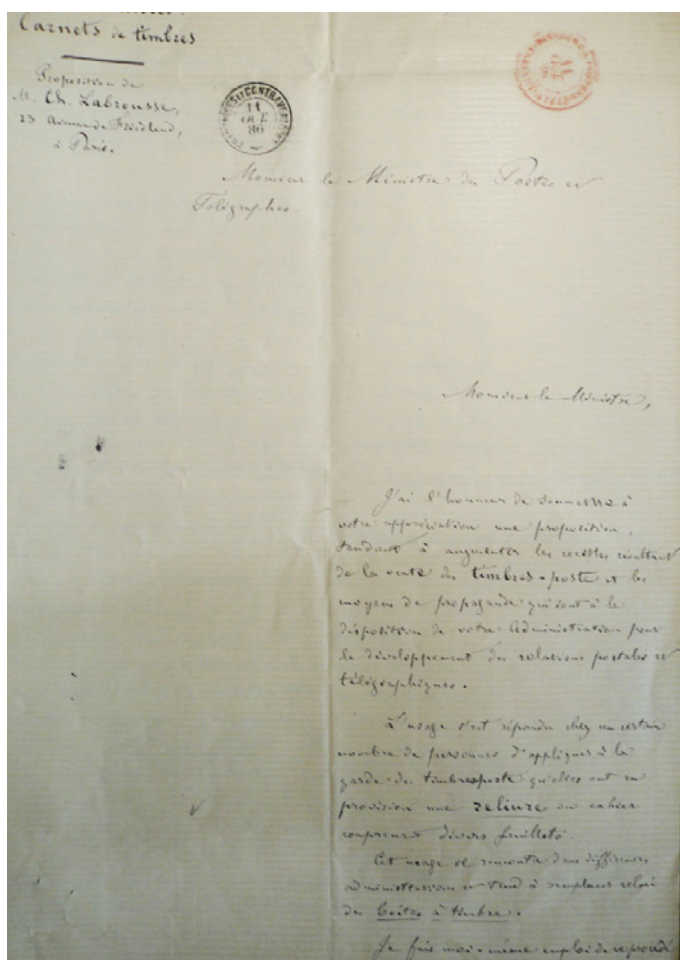 Carnets de timbres
Proposition de
M. Ch. Labrousse,
23 Avenue de Friedland,
à Paris.
11
86
Monsieur le Ministre des Postes et
Télégraphes.
Monsieur le Ministre,
J'ai l'honneur de soumettre à
votre appréciation une proposition,
tendant à augmenter les recettes résultant
de la vente des timbres-poste et les
moyens de propagande qui sont à la
disposition de votre Administration pour
le développement des relations postales et
télégraphiques.
L'usage s'est répandu chez un certain
nombre de personnes d'appliquer à la
garde des timbres poste qu'elles ont en
provision une reliure ou cahier
comprenant divers feuillets.
Cet usage se remonte dans différentes
administrations et tend à remplacer celui
des boîtes à timbres.
Je fais moi-même emploi de